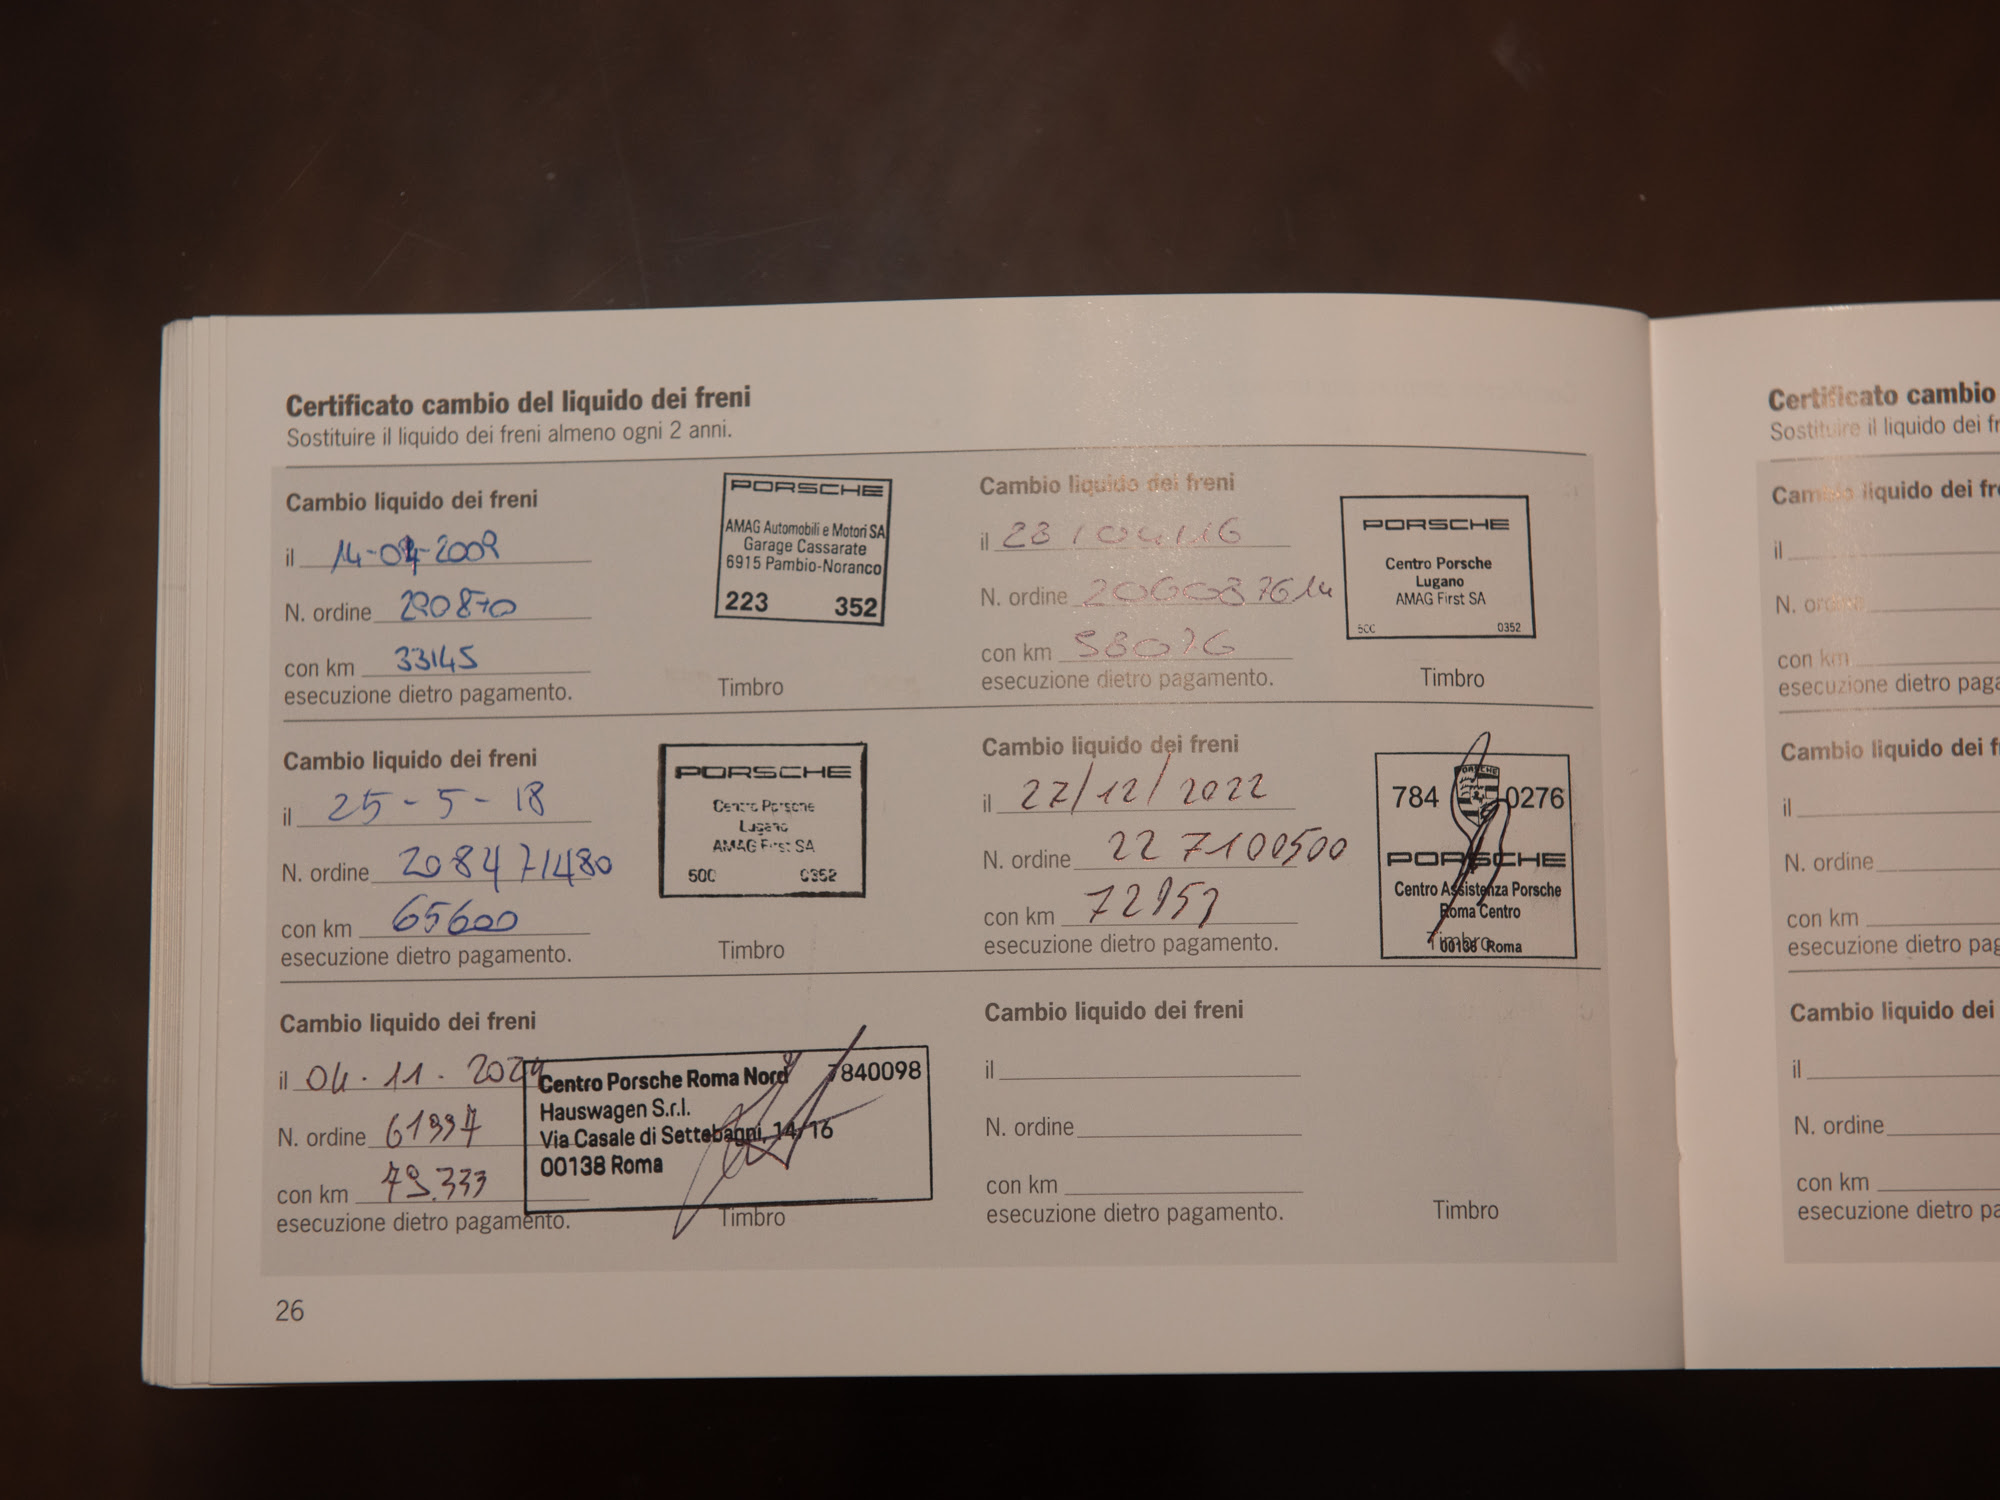 Certificato cambio del liquido dei freni
Sostituire il liquido dei freni almeno ogni 2 anni.
Cambio liquido dei freni
il 14-04-2009
N. ordine 290870
con km 33145
esecuzione dietro pagamento.
PORSCHE
AMAG Automobili e Motori SA
Garage Cassarate
6915 Pambio-Noranco
223 352
Timbro
Cambio liquido dei freni
il 28/04/16
N. ordine 206087614
con km 58076
esecuzione dietro pagamento.
PORSCHE
Centro Porsche
Lugano
AMAG First SA
500 0352
Timbro
Cambio liquido dei freni
il 25-5-18
N. ordine 208471480
con km 65600
esecuzione dietro pagamento.
PORSCHE
Centro Porsche
Lugano
AMAG First SA
500 0352
Timbro
Cambio liquido dei freni
il 27/12/2022
N. ordine 227100500
con km 72957
esecuzione dietro pagamento.
784 0276
PORSCHE
PORSCHE
Centro Assistenza Porsche
Roma Centro
00136 Roma
Timbro
Cambio liquido dei freni
il 04.11.2024
N. ordine 61997
con km 79.333
esecuzione dietro pagamento.
Centro Porsche Roma Nord 7840098
Hauswagen S.r.l.
Via Casale di Settebagni, 14/16
00138 Roma
Timbro
Cambio liquido dei freni
il
N. ordine
con km
esecuzione dietro pagamento.
Timbro
26
Certificato cambio
Sostituire il liquido dei fr
Cambio liquido dei fre
il
N. ordine
con km
esecuzione dietro paga
Cambio liquido dei f
il
N. ordine
con km
esecuzione dietro pag
Cambio liquido dei
il
N. ordine
con km
esecuzione dietro pa